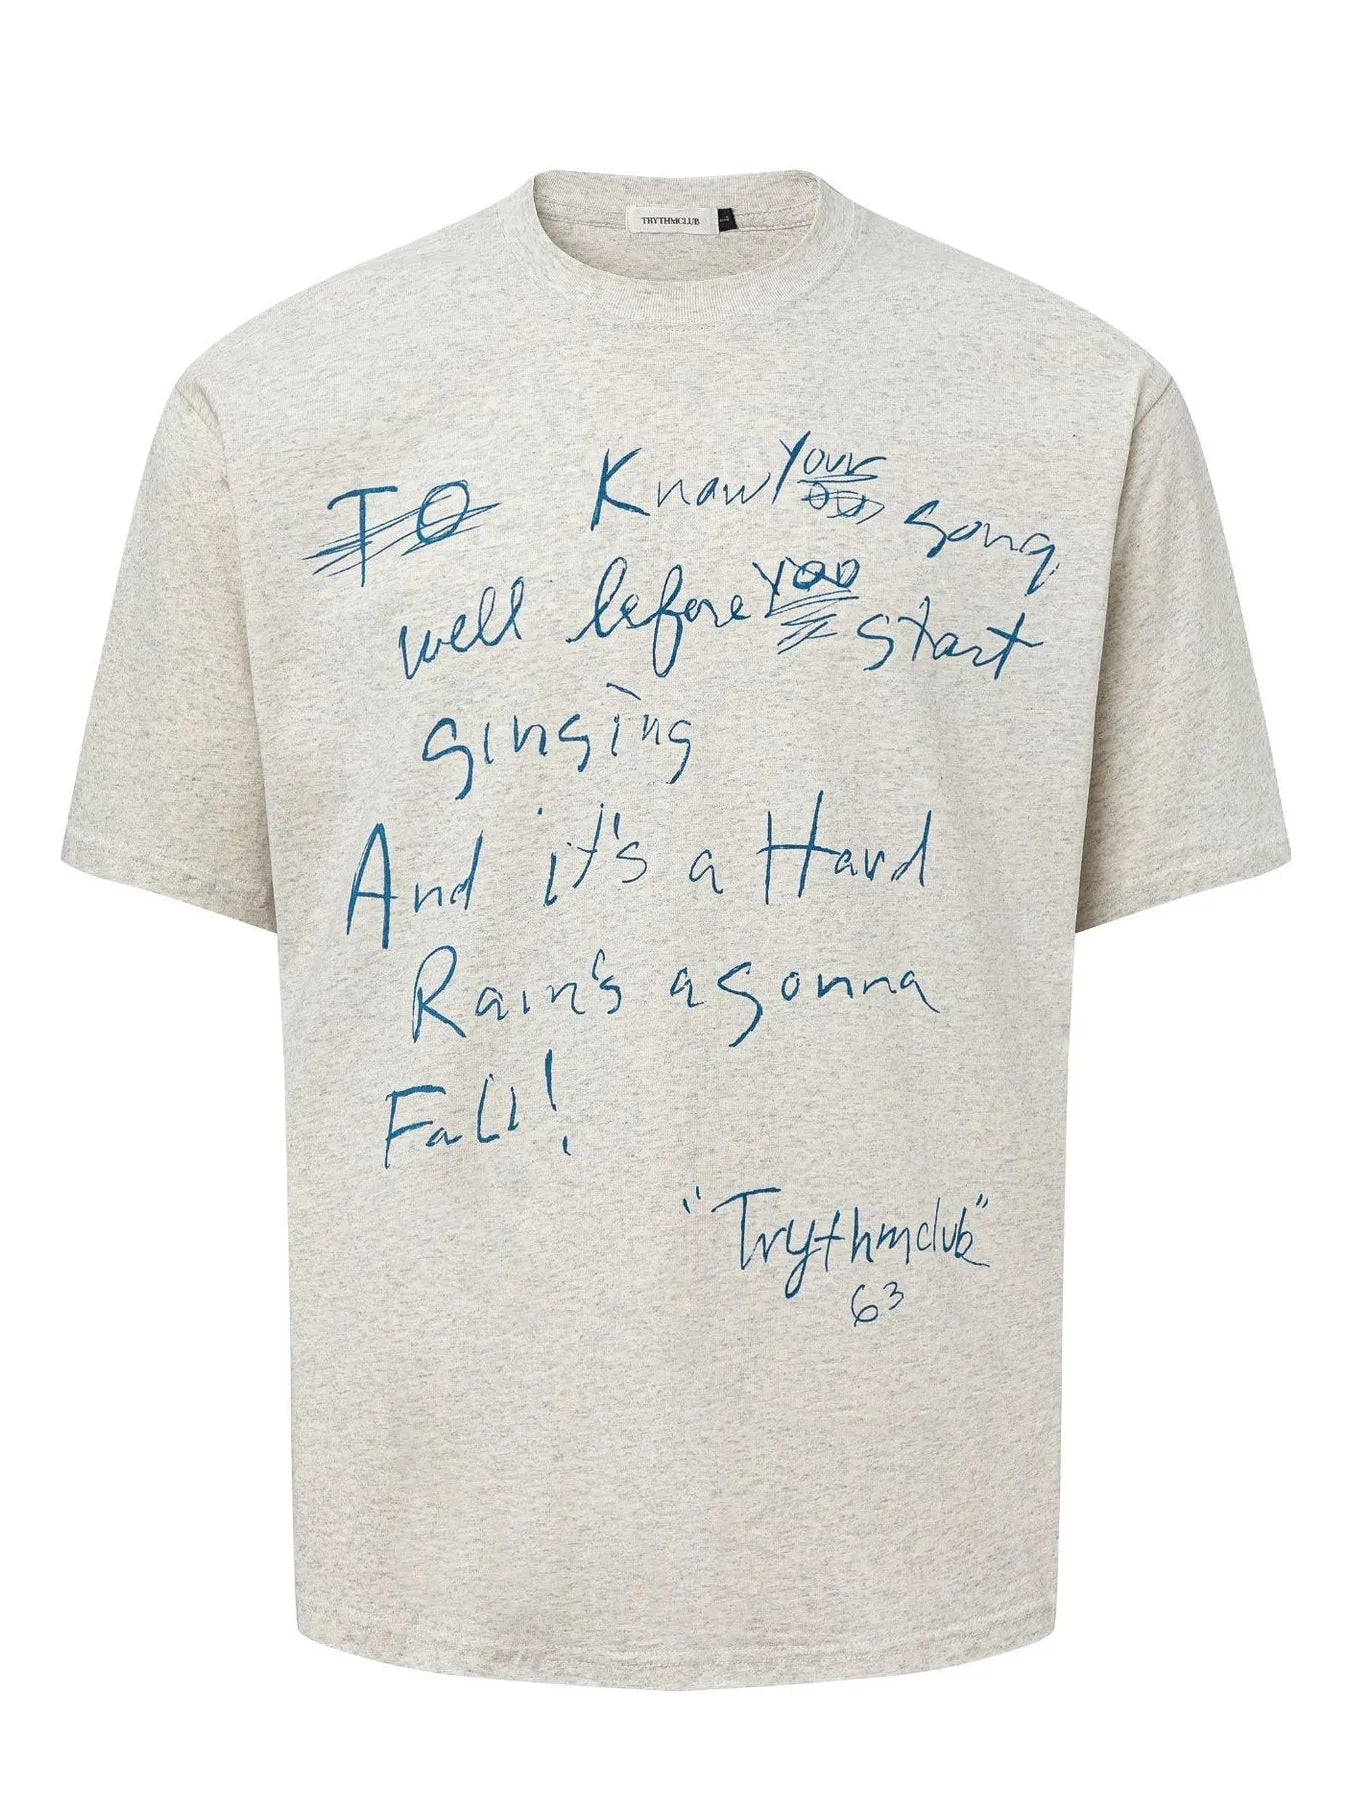 TRYTHMCLUB
TO Know Your song
well before you start
singing
And it's a Hard
Rain's a gonna
Fall!
"Trythmclub"
63